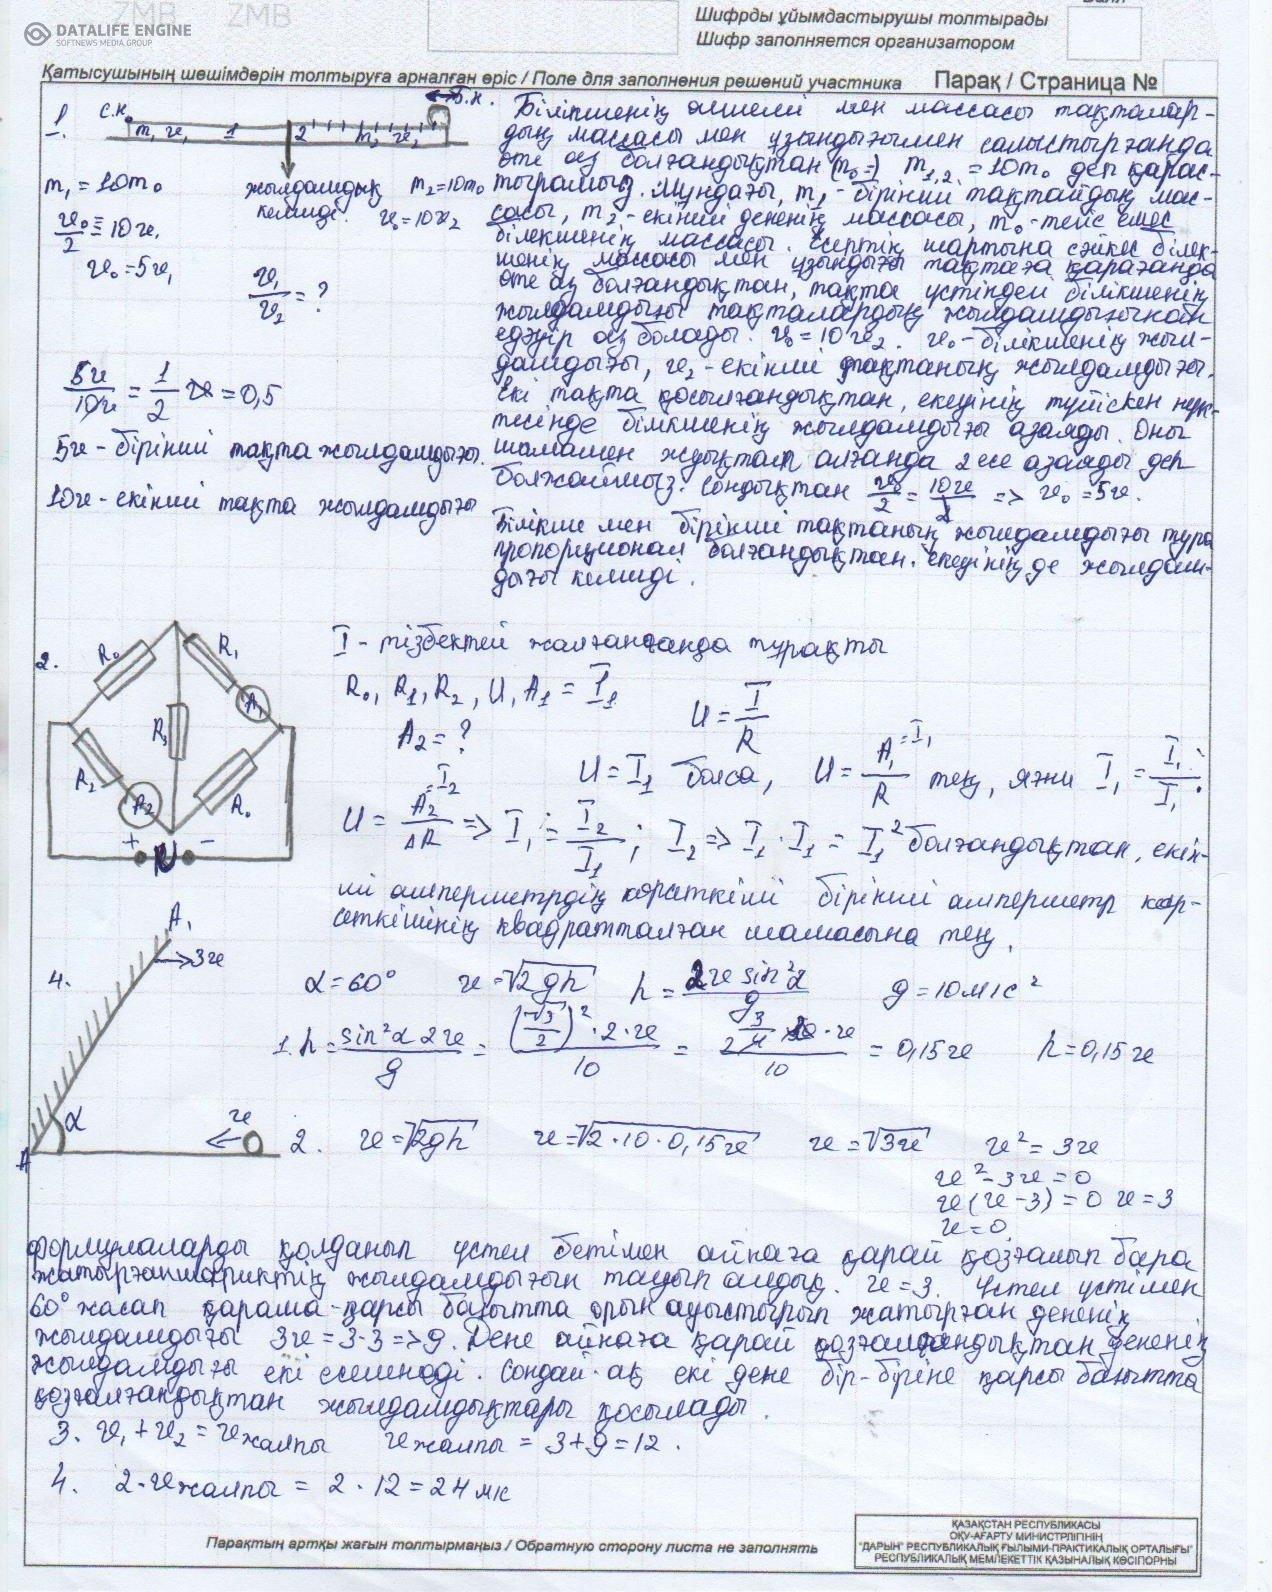 ZMB ZMB
DATALIFE ENGINE
SOFTNEWS MEDIA GROUP
Шифрды ұйымдастырушы толтырады
Шифр заполняется организатором
Қатысушының шешімдерін толтыруға арналған өріс / Поле для заполнения решений участника Парақ / Страница №
1. С.Н. Б.Н.
m₁ υ₁ 1 2 m₂ υ₂
m₁ = 10m₀ жылдамдық кемиді. m₂ = 10m₀ υ₀ = 10υ₂
υ₀/2 = 10υ,
υ₀ = 5υ,
υ₁/υ₂ = ?
5υ/10υ = 1/2 = 0,5
5υ - бірінші тақта жылдамдығы.
10υ - екінші тақта жылдамдығы
Білікшенің өлшемі мен массасы тақталар-
дың массасы мен ұзындығымен салыстырғанда
өте аз болғандықтан (m₀=) m₁,₂ = 10m₀ деп қарас-
тырамыз. Мұндағы, m₁ - бірінші тақтайдың мас-
сасы, m₂ - екінші дененің массасы, m₀ - емес
білекшенің массасы. Есептің шартына сәйкес білек-
шенің массасы мен ұзындығы тақтаға қарағанда
өте аз болғандықтан, тақта үстіндегі білікшенің
жылдамдығы тақталардың жылдамдығынан
едәуір аз болады. υ₀ = 10υ₂. υ₀ - білікшенің жыл-
дамдығы, υ₂ - екінші тақтаның жылдамдығы.
Екі тақта қосылғандықтан, екеуінің түйіскен нүк-
тесінде білікшенің жылдамдығы азаяды. Оны
шамамен жуықтап алғанда 2 есе азаяды деп
болжаймыз. Сондықтан υ₀/2 = 10υ/1 => υ₀ = 5υ.
Білікше мен бірінші тақтаның жылдамдығы тура
пропорционал болғандықтан. екеуінің де жылдам-
дығы кемиді.
2. R₀ R₁ A₁ R₃ R₂ A₂ R₀ + U -
I - тізбектей жалғанғанда тұрақты
R₀, R₁, R₂, U, A₁ = I₁
A₂ = ?
U = I/R
U = I₁ болса, U = A₁=I₁/R тең, яғни I₁ = I₁/I₁.
U = A₂=I₂/ΔR => I₁ = I₂/I₁; I₂ => I₁·I₁ = I₁² болғандықтан, екін-
ші амперметрдің көрсеткіші бірінші амперметр көр-
сеткішінің квадратталған шамасына тең.
4. A₁ 3υ α υ A
α = 60° υ = √2gh h = 2υ sin²α/g g = 10м/с²
1. h = sin²α 2υ/g = (√3/2)²·2·υ/10 = 3/4 ·υ/10 = 0,15υ h = 0,15υ
2. υ = √2gh υ = √2·10·0,15υ υ = √3υ υ² = 3υ
υ² - 3υ = 0
υ(υ - 3) = 0 υ = 3
υ = 0
Формулаларды қолданып үстел бетімен айнаға қарай қозғалып бара
жатырған шариктің жылдамдығын тауып алдық. υ = 3. Үстел үстімен
60° жасап қарама-қарсы бағытта орын ауыстырып жатырған дененің
жылдамдығы 3υ = 3·3 => 9. Дене айнаға қарай қозғалғандықтан дененің
жылдамдығы екі еселенеді. Сондай-ақ екі дене бір-біріне қарсы бағытта
қозғалғандықтан жылдамдықтары қосылады.
3. υ₁ + υ₂ = υжалпы υжалпы = 3 + 9 = 12.
4. 2·υжалпы = 2 · 12 = 24 мк
Парақтың артқы жағын толтырмаңыз / Обратную сторону листа не заполнять
ҚАЗАҚСТАН РЕСПУБЛИКАСЫ
ОҚУ-АҒАРТУ МИНИСТРЛІГІНІҢ
"ДАРЫН" РЕСПУБЛИКАЛЫҚ ҒЫЛЫМИ-ПРАКТИКАЛЫҚ ОРТАЛЫҒЫ"
РЕСПУБЛИКАЛЫҚ МЕМЛЕКЕТТІК ҚАЗЫНАЛЫҚ КӘСІПОРНЫ